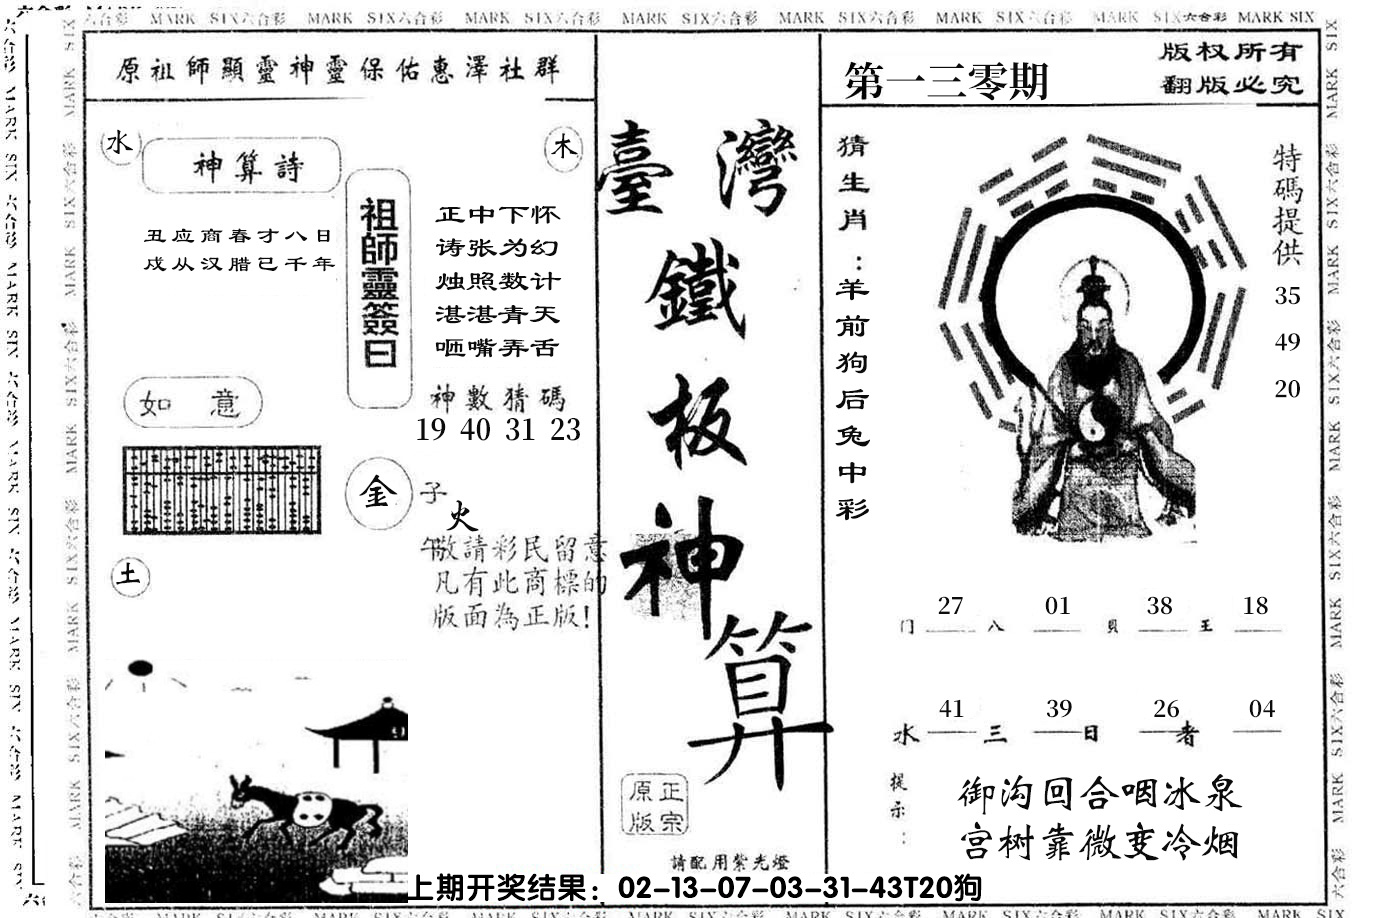 MARK SIX六合彩 MARK SIX六合彩 MARK SIX六合彩 MARK SIX六合彩 MARK SIX六合彩 MARK SIX六合彩 MARK SIX六合彩 MARK SIX
原祖師顯靈神靈保佑惠澤社群
水
神算詩
木
丑应商春才八日
戍从汉腊已千年
祖師靈簽曰
正中下怀
诪张为幻
烛照数计
湛湛青天
咂嘴弄舌
神數猜碼
19 40 31 23
如 意
金
子
火
午
敬請彩民留意
凡有此商標的
版面為正版!
土
臺灣
鐵
板
神
算
原正
版宗
請配用紫光燈
第一三零期
版权所有
翻版必究
猜生肖:羊前狗后兔中彩
特碼提供
35
49
20
27 01 38 18
门 八 貝 王
41 39 26 04
水 三 日 者
提示:
御沟回合咽冰泉
宫树靠微变冷烟
上期开奖结果：02-13-07-03-31-43T20狗